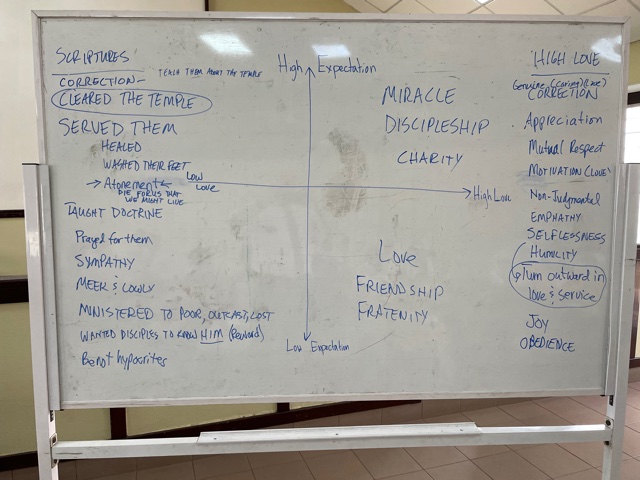 SCRIPTURES
CORRECTION - TEACH THEM ABOUT THE TEMPLE
CLEARED THE TEMPLE
SERVED THEM
HEALED
WASHED THEIR FEET
→ Atonement ←
DIE FOR US THAT
WE MIGHT LIVE
TAUGHT DOCTRINE
Prayed for them
SYMPATHY
MEEK & LOWLY
MINISTERED TO POOR, OUTCAST, LOST
WANTED DISCIPLES TO KNOW HIM (Reword)
Be not hypocrites
High Expectation
MIRACLE
DISCIPLESHIP
CHARITY
Low
Love
High Love
Love
FRIENDSHIP
FRATENITY
Low Expectation
HIGH LOVE
Genuine (Caring) (Love)
CORRECTION
Appreciation
Mutual Respect
MOTIVATION (LOVE)
Non-Judgmental
EMPHATHY
SELFLESSNESS
HUMILITY
Turn outward in
love & service
JOY
OBEDIENCE